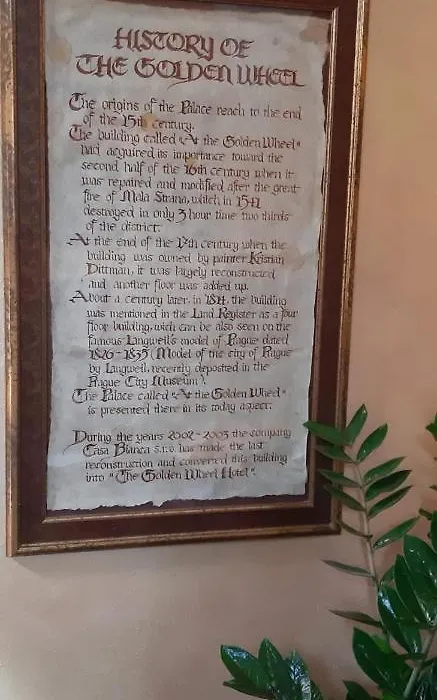 HISTORY OF
THE GOLDEN WHEEL
The origins of the Palace reach to the end
of the 15th century.
The building called "At the Golden Wheel"
had acquired its importance toward the
second half of the 16th century when it
was repaired and modified after the great
fire of Mala Strana, which, in 1541
destroyed in only 3 hour time two thirds
of the district.
At the end of the 17th century when the
building was owned by painter Kristian
Dittman, it was largely reconstructed
and another floor was added up.
About a century later, in the building
was mentioned in the Land Register as a four
floor building, wich can be also seen on the
famous Langweil's model of Prague dated
1826-1835 (Model of the city of Prague
by Langweil, recently deposited in the
Prague City Museum).
The Palace called "At the Golden Wheel"
is presented there in its today aspect.
During the years 2002-2003 the company
Casa Bianca s.r.o. has made the last
reconstruction and converted this building
into "The Golden Wheel Hotel".